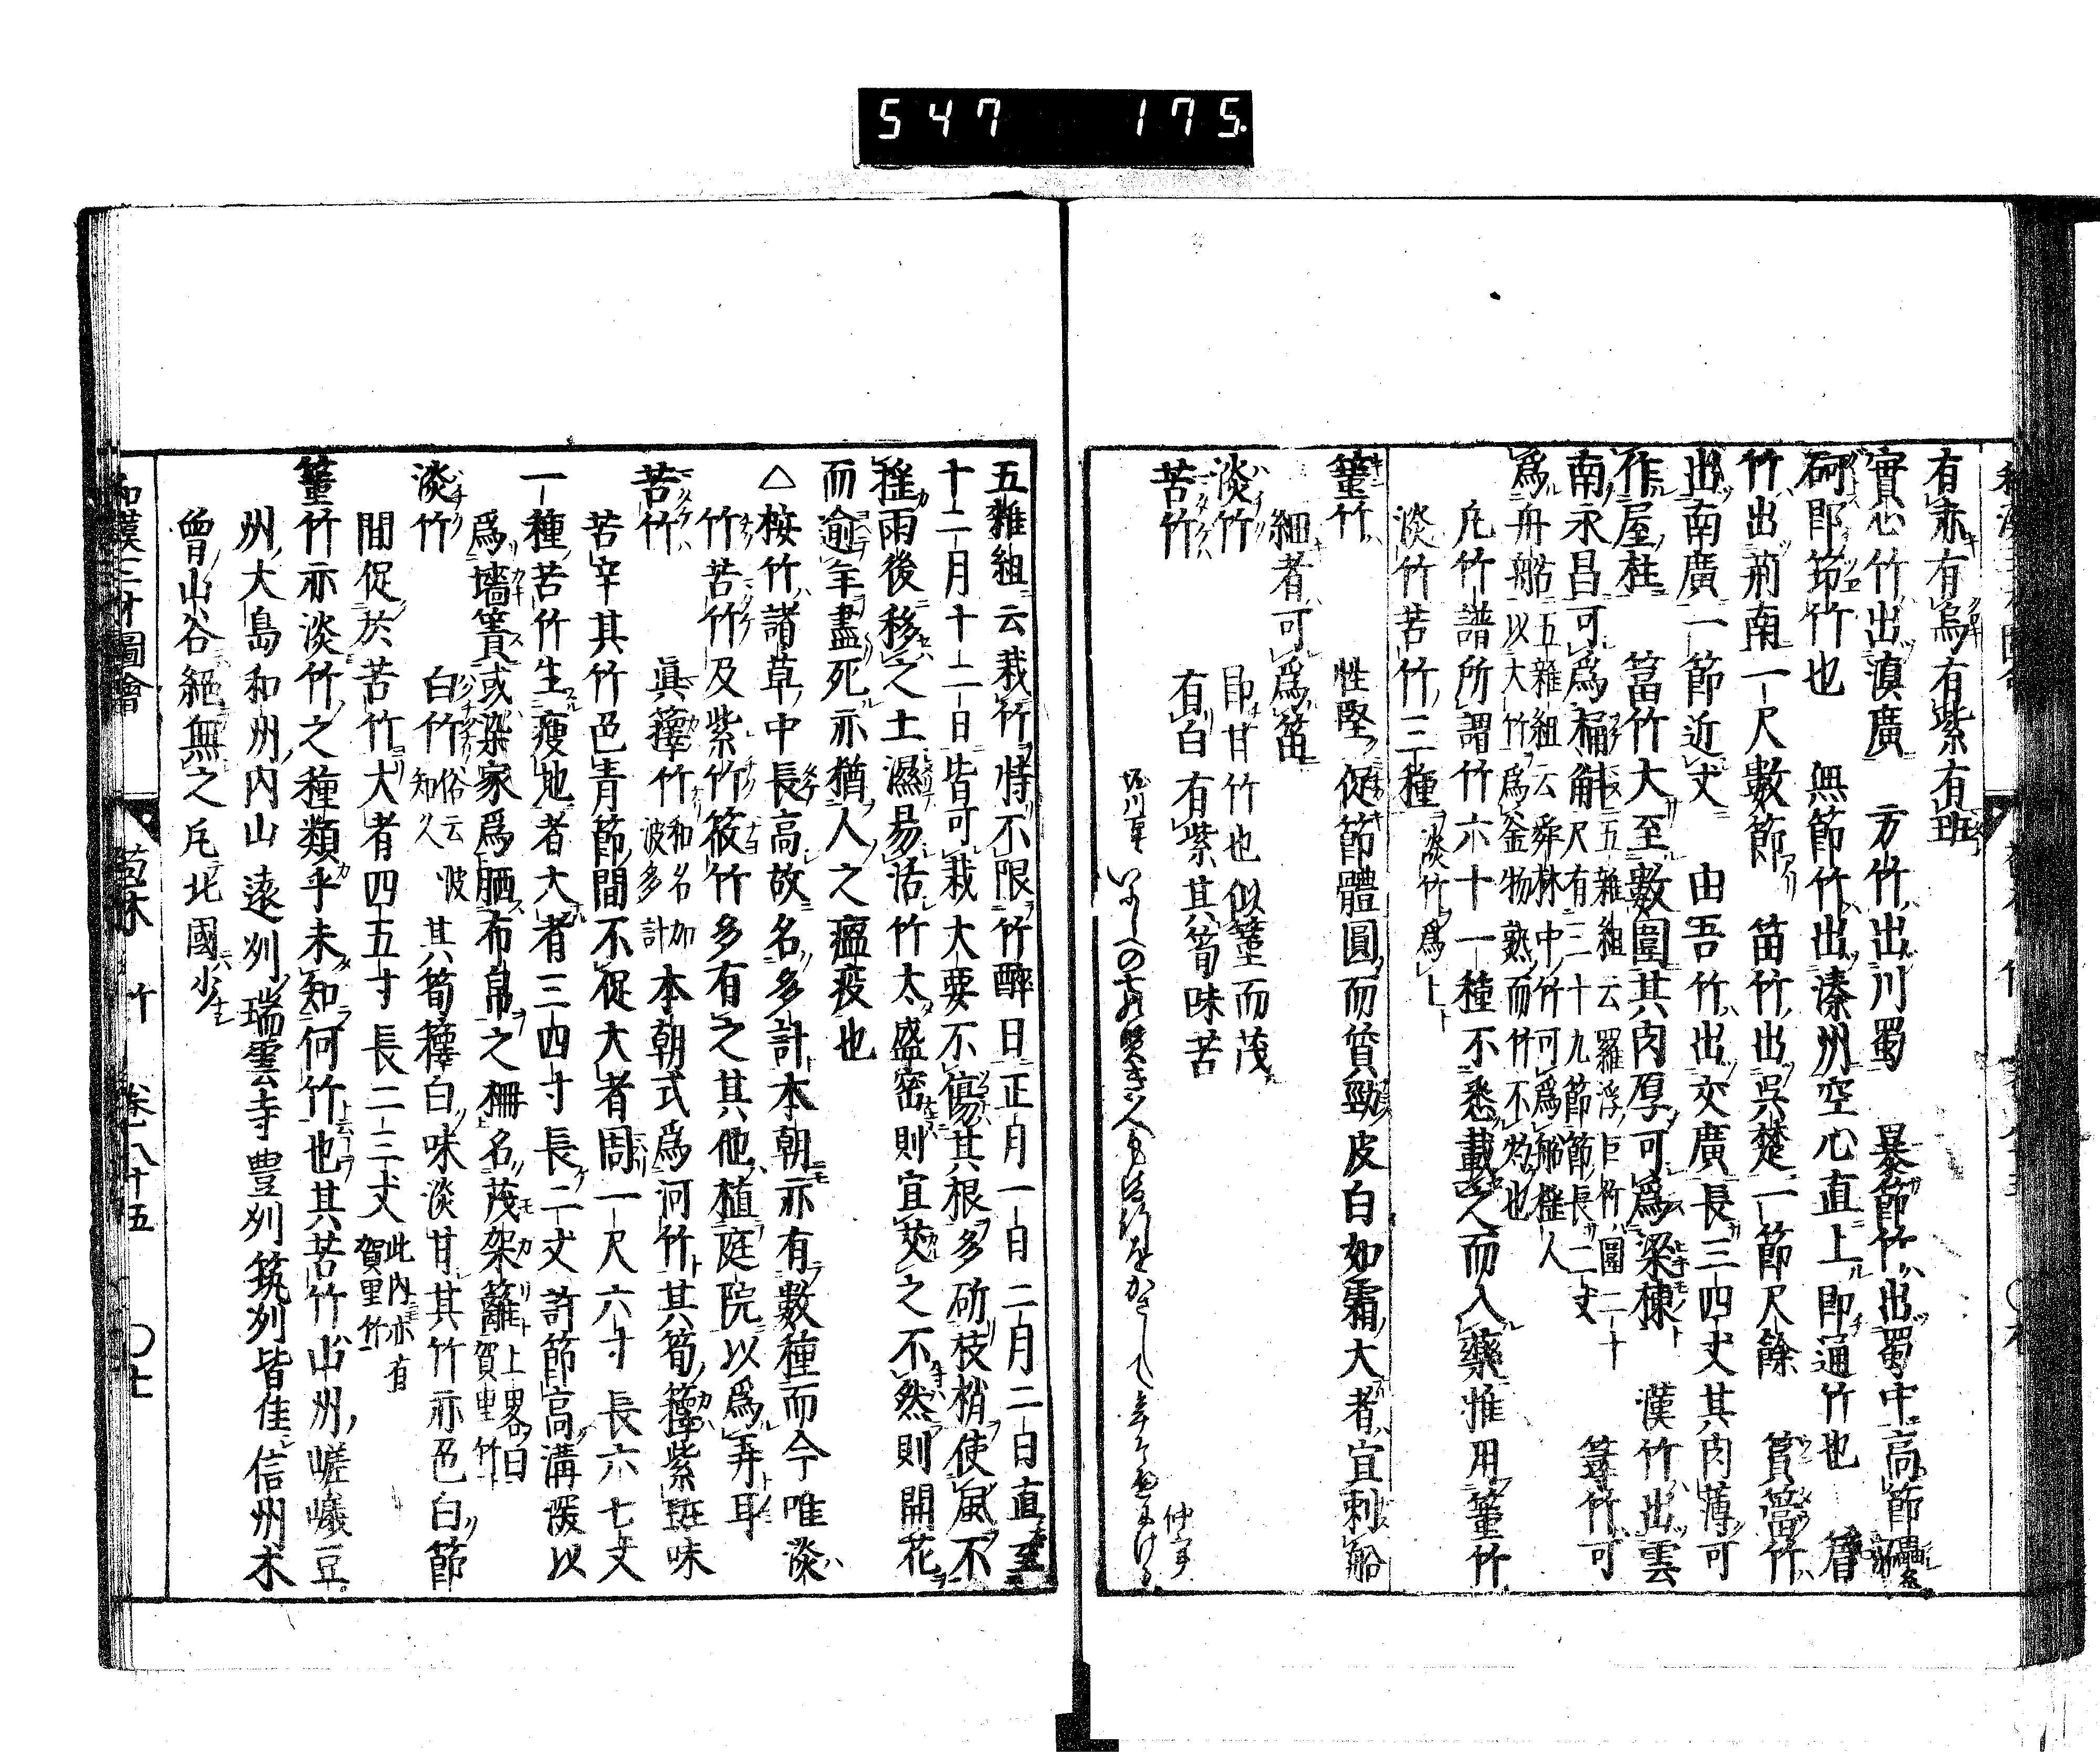 547 175.
有赤有烏有紫有斑
實心竹出滇廣 方竹出川蜀 暴節竹出蜀中高節磥
砢即筇竹也 無節竹出溱州空心直上即通竹也 篃
竹出荊南一尺數節 笛竹出呉楚一節尺餘 篔簹竹
出南廣一節近丈 由吾竹出交廣長三四丈其肉薄可
作屋柱 篃竹大至數圍其肉厚可爲梁棟 漢竹出雲
南永昌可爲桶斛 五雜組云羅浮巨竹圍二十
尺有三十九節節長二丈 䈏竹可
爲舟船 五雜組云舜林中竹可爲船極人
以大竹爲釜物熟而竹不灼也
凡竹譜所謂竹六十一種不悉載之而入藥惟用䈽竹
淡竹苦竹三種 淡竹爲上
䈽竹 性堅促節體圓而質勁皮白如霜大者宜刺船
細者可爲笛
淡竹 即甘竹也似䈽而茂
苦竹 有白有紫其筍味苦
堀川百 いにしへの七の賢き人も
仲實
五雜組云栽竹特不限竹醉日正月一日二月二日直至
十二月十二日皆可栽大要不傷其根多斫枝梢使風不
搖雨後移之土濕易活竹太盛密則宜芟之不然則開花
而逾年盡死亦猶人之瘟疫也
△按竹諸草中長高故名多計本朝亦有數種而今唯淡
竹苦竹及紫竹筱竹多有之其他植庭院以爲弄耳
苦竹 眞籜竹 和名加
波多計 本朝式爲河竹其筍籜紫斑味
苦辛其竹色青節間不促大者周一尺六寸長六七丈
一種苦竹生瘦地者大者三四寸長二丈許節高溝深以
爲墻簀或染家爲晒布帛之柵名茂架籬 上畧曰
賀里竹
淡竹 白竹 俗云波
知久 其筍籜白味淡甘其竹亦色白節
間促於苦竹大者四五寸長二三丈 此内亦有
賀里竹
䈽竹亦淡竹之種類乎未知何竹也其苦竹山州嵯峨豆
州大島和州内山遠州瑞雲寺豊州筑州皆佳信州木
曾山谷絕無之凡北國少
和漢三才圖會 苞木 竹 卷八十五 〇七